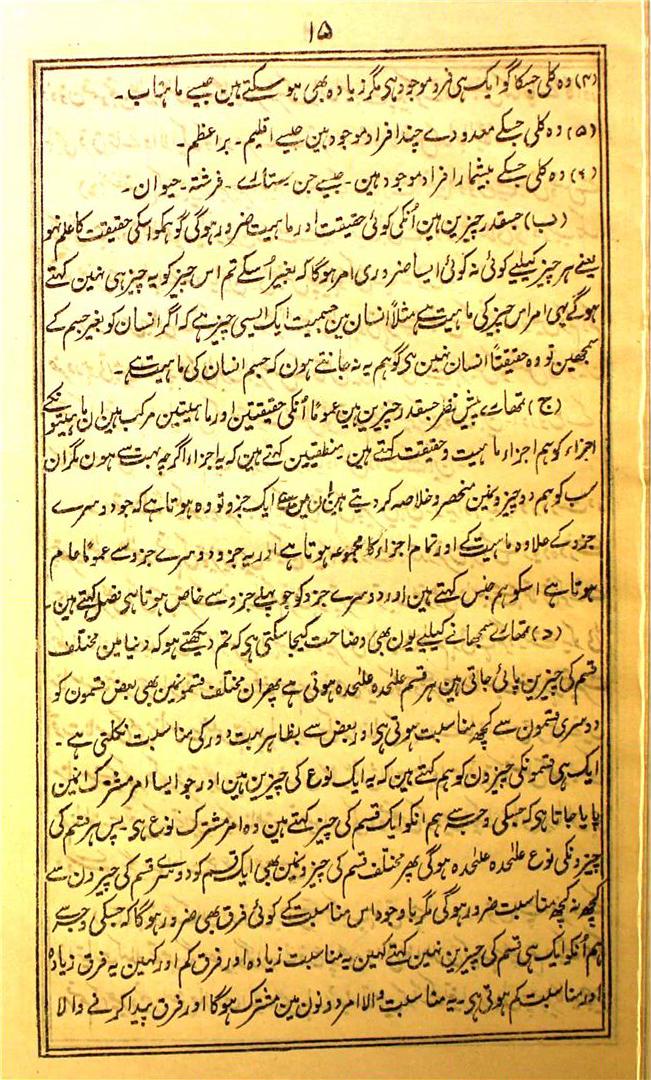 ۱۵
(۴) وہ کلی جسکا گو ایک ہی فرد موجود ہی مگر زیادہ بھی ہو سکتے ہین جیسے ماہتاب ۔
(۵) وہ کلی جسکے معدودے چند افراد موجود ہین جیسے اقلیم ۔ براعظم ۔
(۶) وہ کلی جسکے بیشمار افراد موجود ہین ۔ جیسے جن ستارے ۔ فرشتہ ۔ حیوان ۔
(ب) جسقدر چیزین ہین اُنکی کوئی حقیقت اور ماہیت ضرور ہوگی گو ہمکو اسکی حقیقت کا علم نہو
یعنے ہر چیز کیلیے کوئی نہ کوئی ایسا ضروری امر ہوگا کہ بغیر اُسکے تم اس چیز کو یہ چیز ہی نہین کہتے
ہوگے یہی امر اس چیز کی ماہیت ہے مثلاً انسان مین جسمیت ایک ایسی چیز ہے کہ اگر انسان کو بغیر جسم کے
سمجھین تو وہ حقیقتاً انسان نہین ہی گو ہم یہ نہ جانتے ہون کہ جسم انسان کی ماہیت ہے ۔
(ج) تمھارے پیش نظر جسقدر چیزین ہین عموماً اُنکی حقیقتین اور ماہیتین مرکب ہین ان ماہیتونکے
اجزاء کو ہم اجزاء ماہیت و حقیقت کہتے ہین ۔ منطقیین کہتے ہین کہ یہ اجزاء اگرچہ بہت سے ہون مگر ان
سب کو ہم دو چیزونمین منحصر و خلاصہ کر دیتے ہین ان مین سے ایک جزو تو وہ ہوتا ہے کہ جو دوسرے
جزو کے علاوہ ماہیت کے اور تمام اجزاء کا مجموعہ ہوتا ہے اور یہ جزو دوسرے جزو سے عموماً عام
ہوتا ہے اسکو ہم جنس کہتے ہین اور دوسرے جزو کو جو پہلے جزو سے خاص ہوتا ہی فصل کہتے ہین ۔
(د) تمھارے سمجھانے کیلیے یون بھی وضاحت کیجا سکتی ہی کہ تم دیکھتے ہو کہ دنیا مین مختلف
قسم کی چیزین پائی جاتی ہین ہر قسم علٰحدہ علٰحدہ ہوتی ہے پھر ان مختلف قسمونمین بھی بعض قسمون کو
دوسری قسمون سے کچھ مناسبت ہوتی ہی اور بعض سے بظاہر بہت دور کی مناسبت نکلتی ہے ۔
ایک ہی قسمونکی چیزون کو ہم کہتے ہین کہ یہ ایک نوع کی چیزین ہین اور جو ایسا امر مشترک انمین
پایا جاتا ہی کہ جسکی وجہ سے ہم انکو ایک قسم کی چیز کہتے ہین وہ امر مشترک نوع ہی ۔ پس ہر قسم کی
چیزونکی نوع علٰحدہ علٰحدہ ہوگی پھر مختلف قسم کی چیزونمین بھی ایک قسم کو دوسرے قسم کی چیزون سے
کچھ نہ کچھ مناسبت ضرور ہوگی مگر باوجود اس مناسبت کے کوئی فرق بھی ضرور ہوگا کہ جسکی وجہ سے
ہم اُنکو ایک ہی قسم کی چیزین نہین کہتے کہین یہ مناسبت زیادہ اور فرق کم اور کہین یہ فرق زیادہ
اور مناسبت کم ہوتی ہی ۔ یہ مناسبت والا امر دونون مین مشترک ہوگا اور فرق پیدا کرنے والا